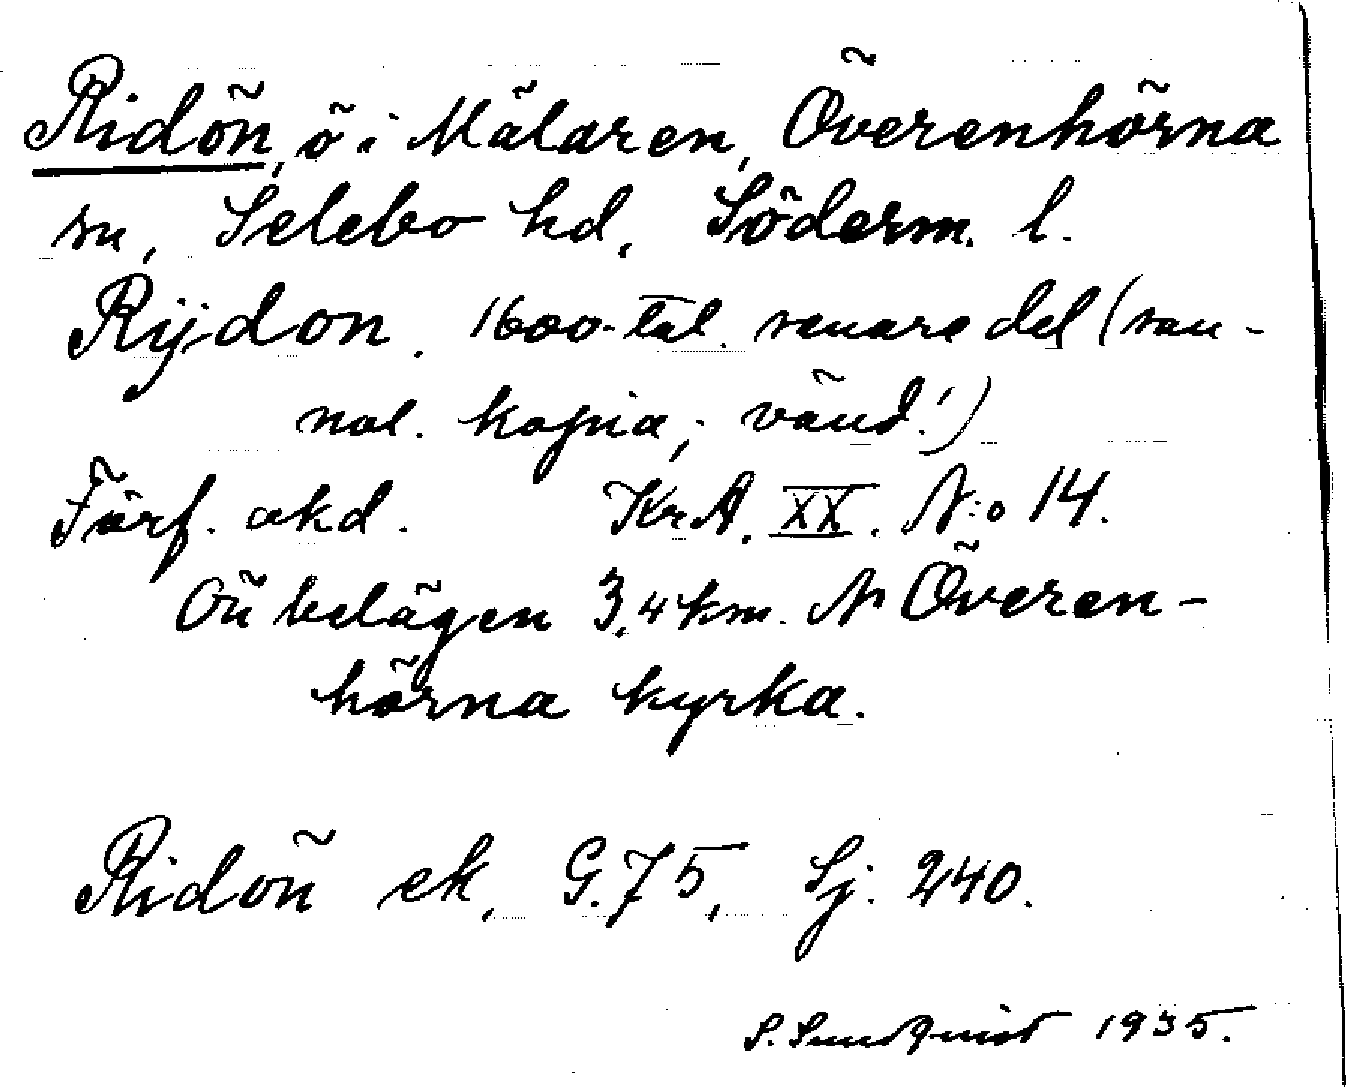 Ridön, ö i Mälaren, Överenhörna
sn, Selebo hd, Söderm. l.
Rijdon. 1600-tal. senare del (san-
nol. kopia; vänd!)
Förf. okd. KrA. XX. N:o 14.
Ön belägen 3,4 km. N Överen-
hörna kyrka.
Ridön ek, G.75, Sj. 240.
S. Sundqvist 1935.